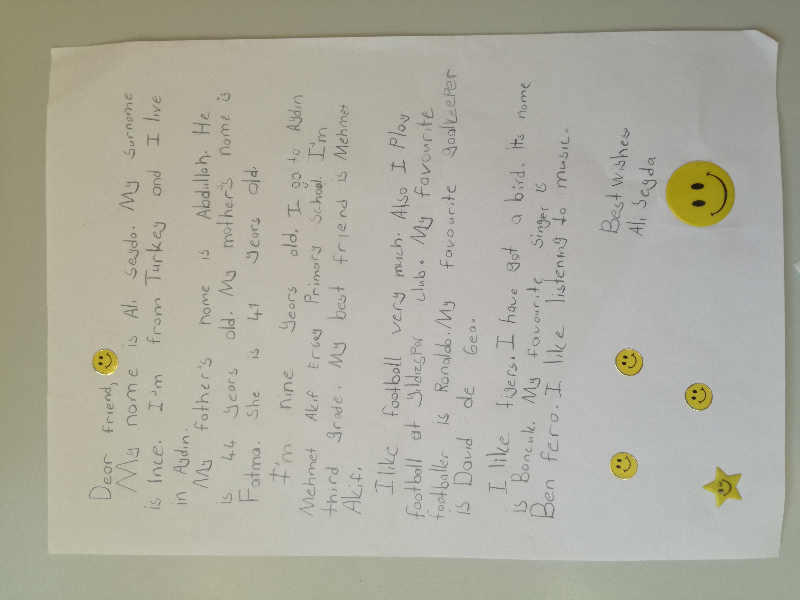 Dear friend,
My name is Ali Seyda. My surname
is Ince. I'm from Turkey and I live
in Aydin.
My father's name is Abdullah. He
is 44 years old. My mother's name is
Fatma. She is 41 years old.
I'm nine years old. I go to Aydin
Mehmet Akif Ersoy Primary School. I'm
third grade. My best friend is Mehmet
Akif.
I like football very much. Also I play
football at yildizspor club. My favourite
footballer is Ronaldo. My favourite goalkeeper
is David de Gea.
I like tigers. I have got a bird. Its name
is Boncuk. My favourite singer is
Ben fero. I like listening to music.
Best wishes
Ali Seyda